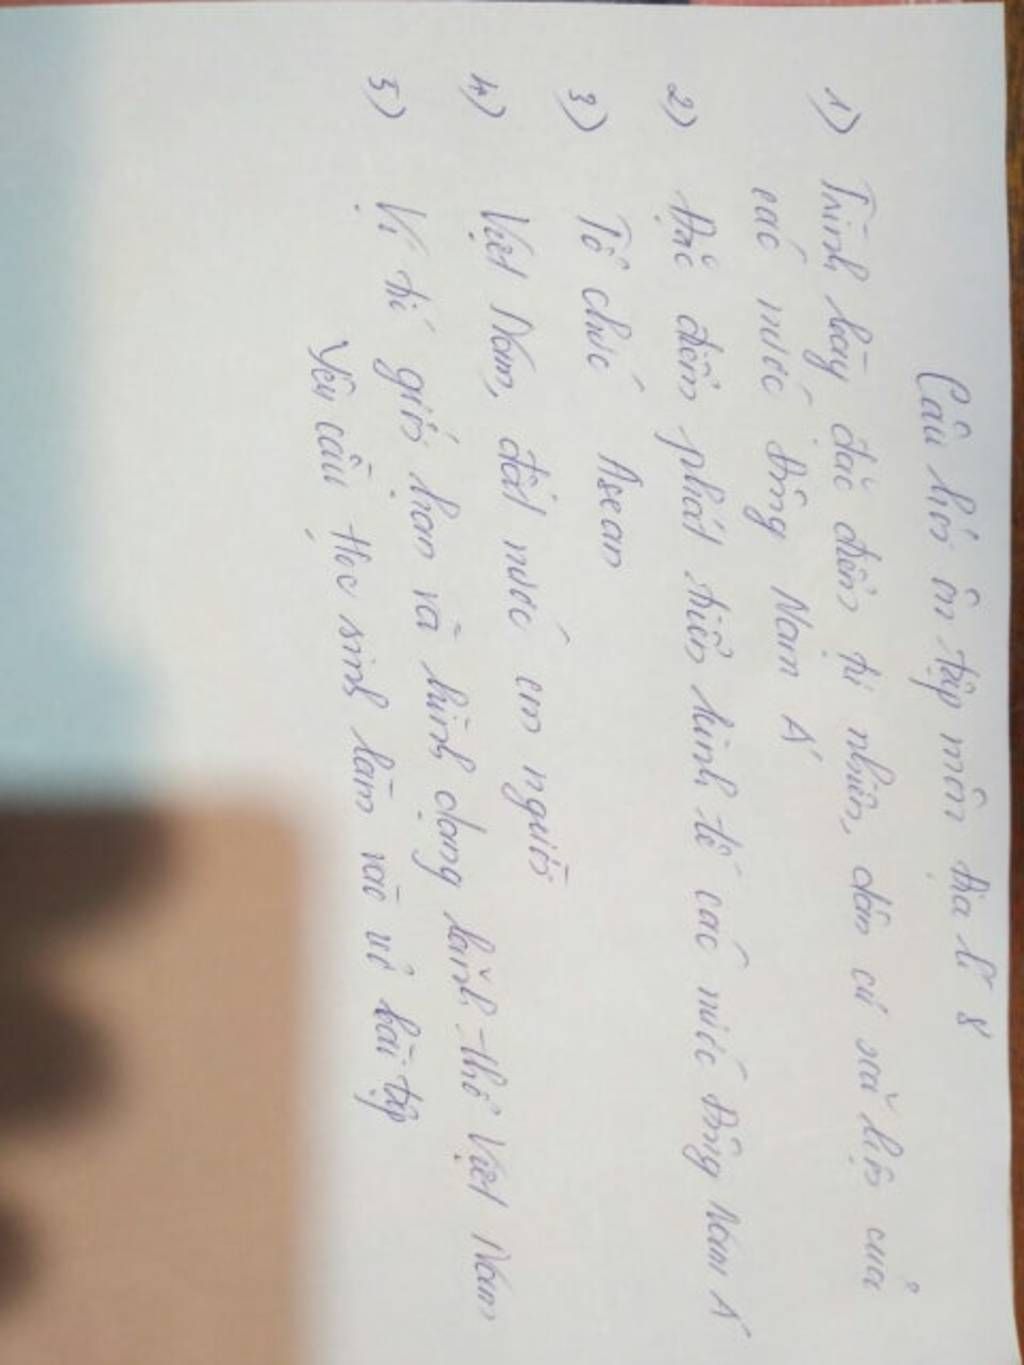 Câu hỏi ôn tập môn Địa lí 8
1) Trình bày đặc điểm tự nhiên, dân cư xã hội của
các nước Đông Nam Á
2) Đặc điểm phát triển kinh tế các nước Đông Nam Á
3) Tổ chức Asean
4) Việt Nam, đất nước con người
5) Vị trí giới hạn và hình dạng lãnh thổ Việt Nam
Yêu cầu Học sinh làm vào vở bài tập